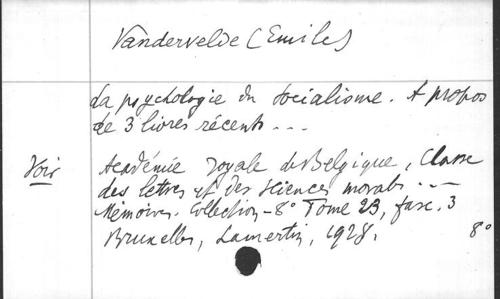 Vandervelde (Emile)
La psychologie du socialisme. A propos
de 3 livres récents...
Voir Académie royale de Belgique, Classe
des lettres et des sciences morales...
Mémoires. Collection -8° Tome 23, fasc. 3
Bruxelles, Lamertin, 1928. 8°